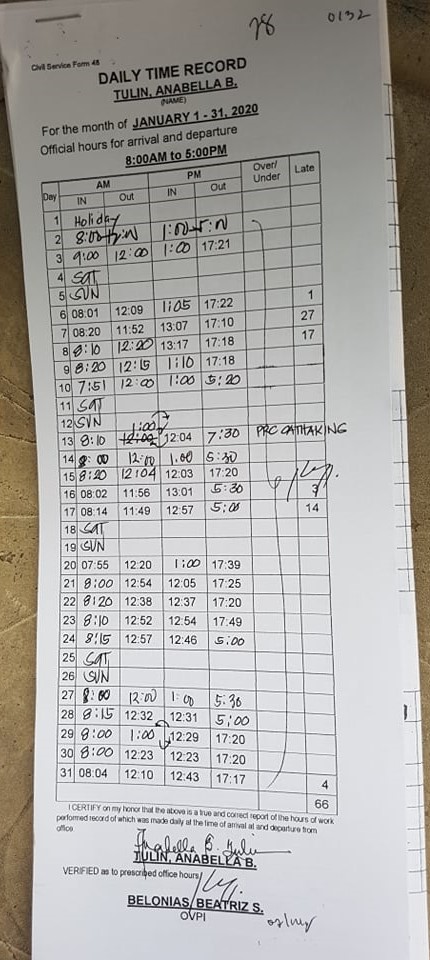 78 0132
Civil Service Form 48
DAILY TIME RECORD
TULIN, ANABELLA B.
(NAME)
For the month of JANUARY 1 - 31, 2020
Official hours for arrival and departure
8:00AM to 5:00PM
Day AM PM Over/ Under Late
IN Out IN Out
1 Holiday
2 8:00
3 9:00 12:00 1:00 17:21
4 SAT
5 SUN
6 08:01 12:09 1:05 17:22 1
7 08:20 11:52 13:07 17:10 27
8 8:10 12:20 13:17 17:18 17
9 8:20 12:15 1:10 17:18
10 7:51 12:00 1:00 5:20
11 SAT
12 SUN
1:00
13 8:10 12:02 12:04 7:30 PRC OATHTAKING
14 8:00 12:00 1:00 5:30
15 8:20 12:04 12:03 17:20
16 08:02 11:56 13:01 5:30 3
17 08:14 11:49 12:57 5:00 14
18 SAT
19 SUN
20 07:55 12:20 1:00 17:39
21 8:00 12:54 12:05 17:25
22 8:20 12:38 12:37 17:20
23 8:10 12:52 12:54 17:49
24 8:15 12:57 12:46 5:00
25 SAT
26 SUN
27 8:00 12:00 1:00 5:30
28 8:15 12:32 12:31 5:00
29 8:00 1:00 12:29 17:20
30 8:00 12:23 12:23 17:20
31 08:04 12:10 12:43 17:17 4
66
I CERTIFY on my honor that the above is a true and correct report of the hours of work
performed record of which was made daily at the time of arrival at and departure from
office
Anabella B. Tulin
TULIN, ANABELLA B.
VERIFIED as to prescribed office hours
BELONIAS, BEATRIZ S.
OVPI